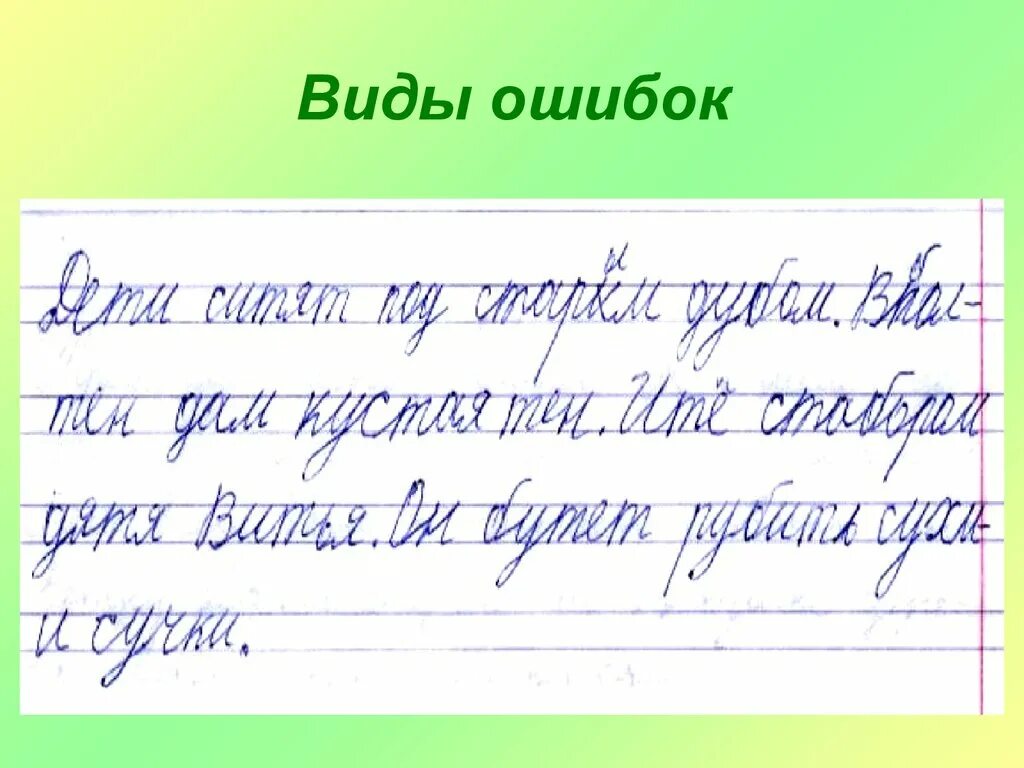 Виды ошибок
Дети ситят под старым дубом. Впол-
тен дам кустая тен. Итё стабором
дятя Витья. Он бутет рубить сухи-
и сучки.